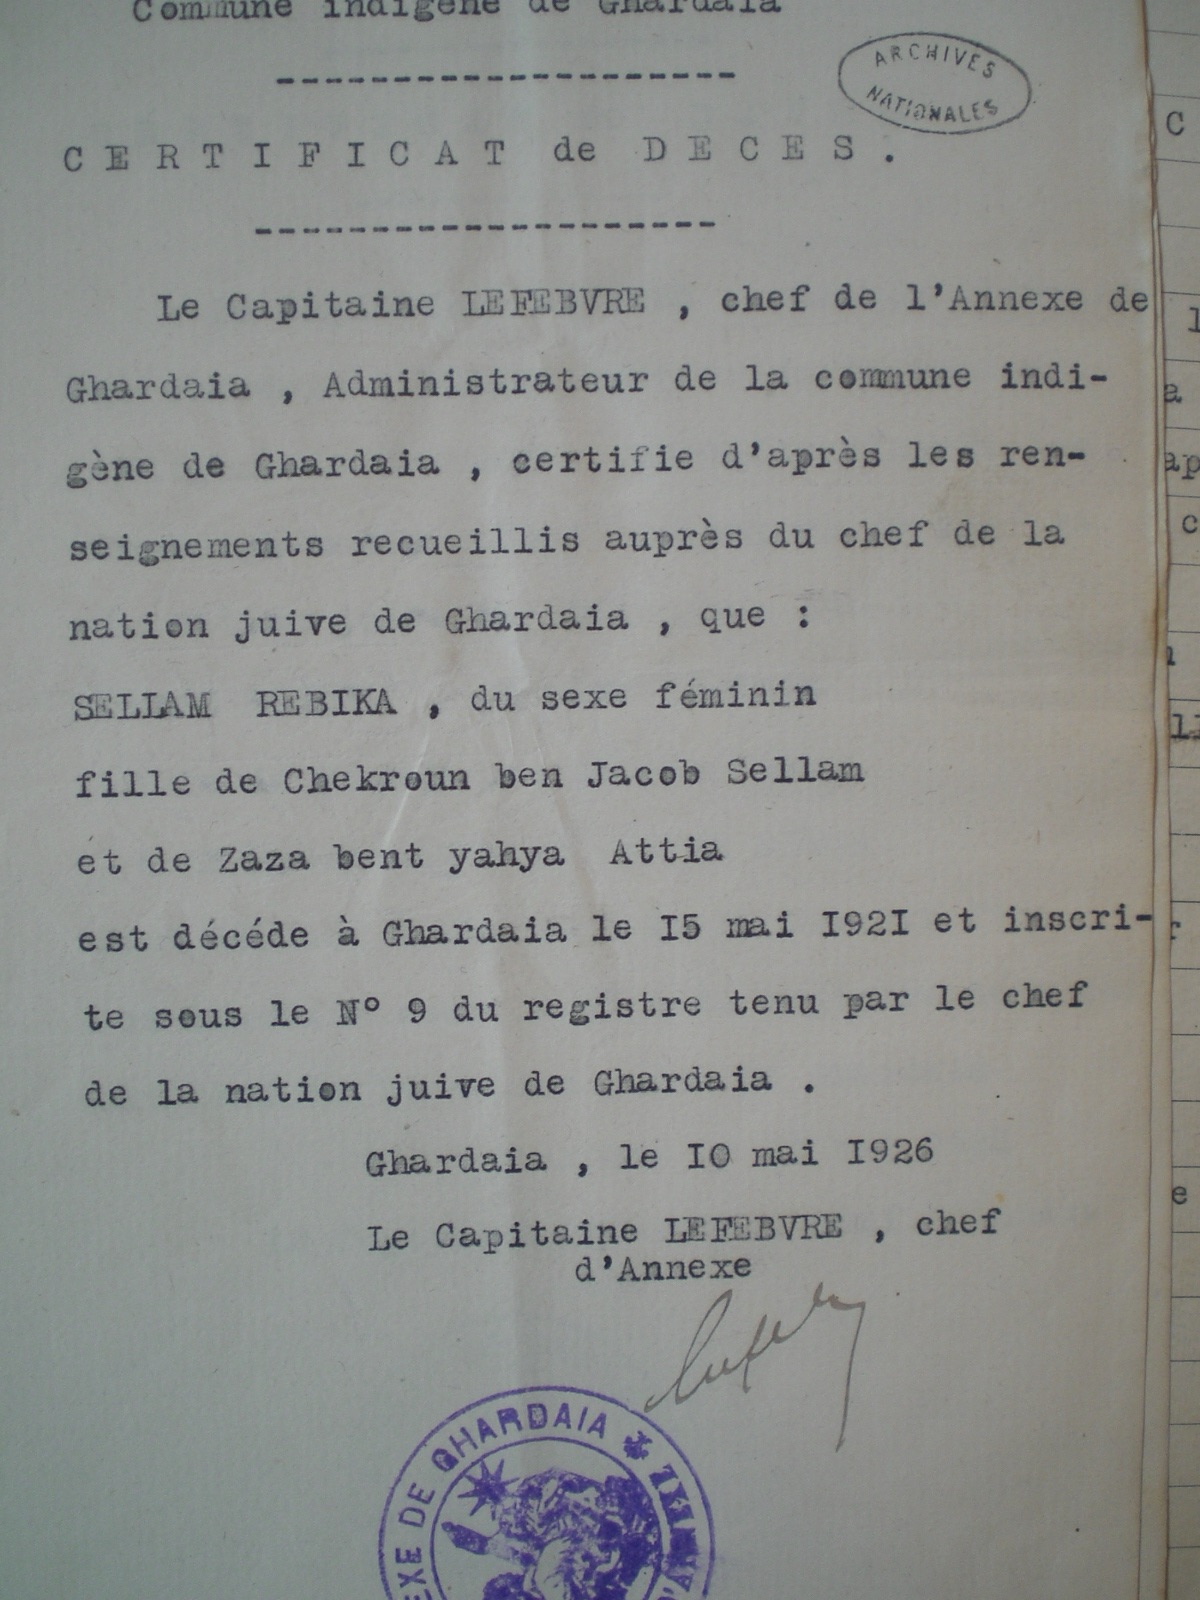 Commune indigène de Ghardaia
ARCHIVES
NATIONALES
CERTIFICAT de DECES.
Le Capitaine LEFEBVRE , chef de l'Annexe de
Ghardaia , Administrateur de la commune indi-
gène de Ghardaia , certifie d'après les ren-
seignements recueillis auprès du chef de la
nation juive de Ghardaia , que :
SELLAM REBIKA , du sexe féminin
fille de Chekroun ben Jacob Sellam
et de Zaza bent yahya Attia
est décéde à Ghardaia le I5 mai I92I et inscri-
te sous le N° 9 du registre tenu par le chef
de la nation juive de Ghardaia .
Ghardaia , le I0 mai I926
Le Capitaine LEFEBVRE , chef
d'Annexe
EXE DE GHARDAIA